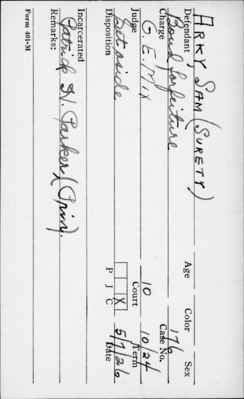 ARKY, SAM (SURETY)
Defendant Age Color Sex
Bond forfeiture 176
Charge Case No.
G. E. Mix 10 10/24
Judge Court Term
Set aside X 5/7/26
Disposition P J C Date
Incarcerated
Patrick H. Parker (Prin).
Remarks:
Form 401-M